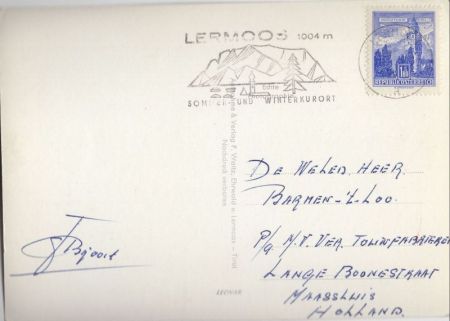 LERMOOS 1004 m
SOMMER- UND WINTERKURORT
REPUBLIK ÖSTERREICH
Echte
& Verlag F. Waltz, Ehrwald u. Lermoos – Tirol
Nachdruck verboten
DE WELED. HEER.
BARMEN-'T-LOO.
P/A N.V. VER. TOUWFABRIEKEN
LANGE BOONESTRAAT
MAASSLUIS
HOLLAND.